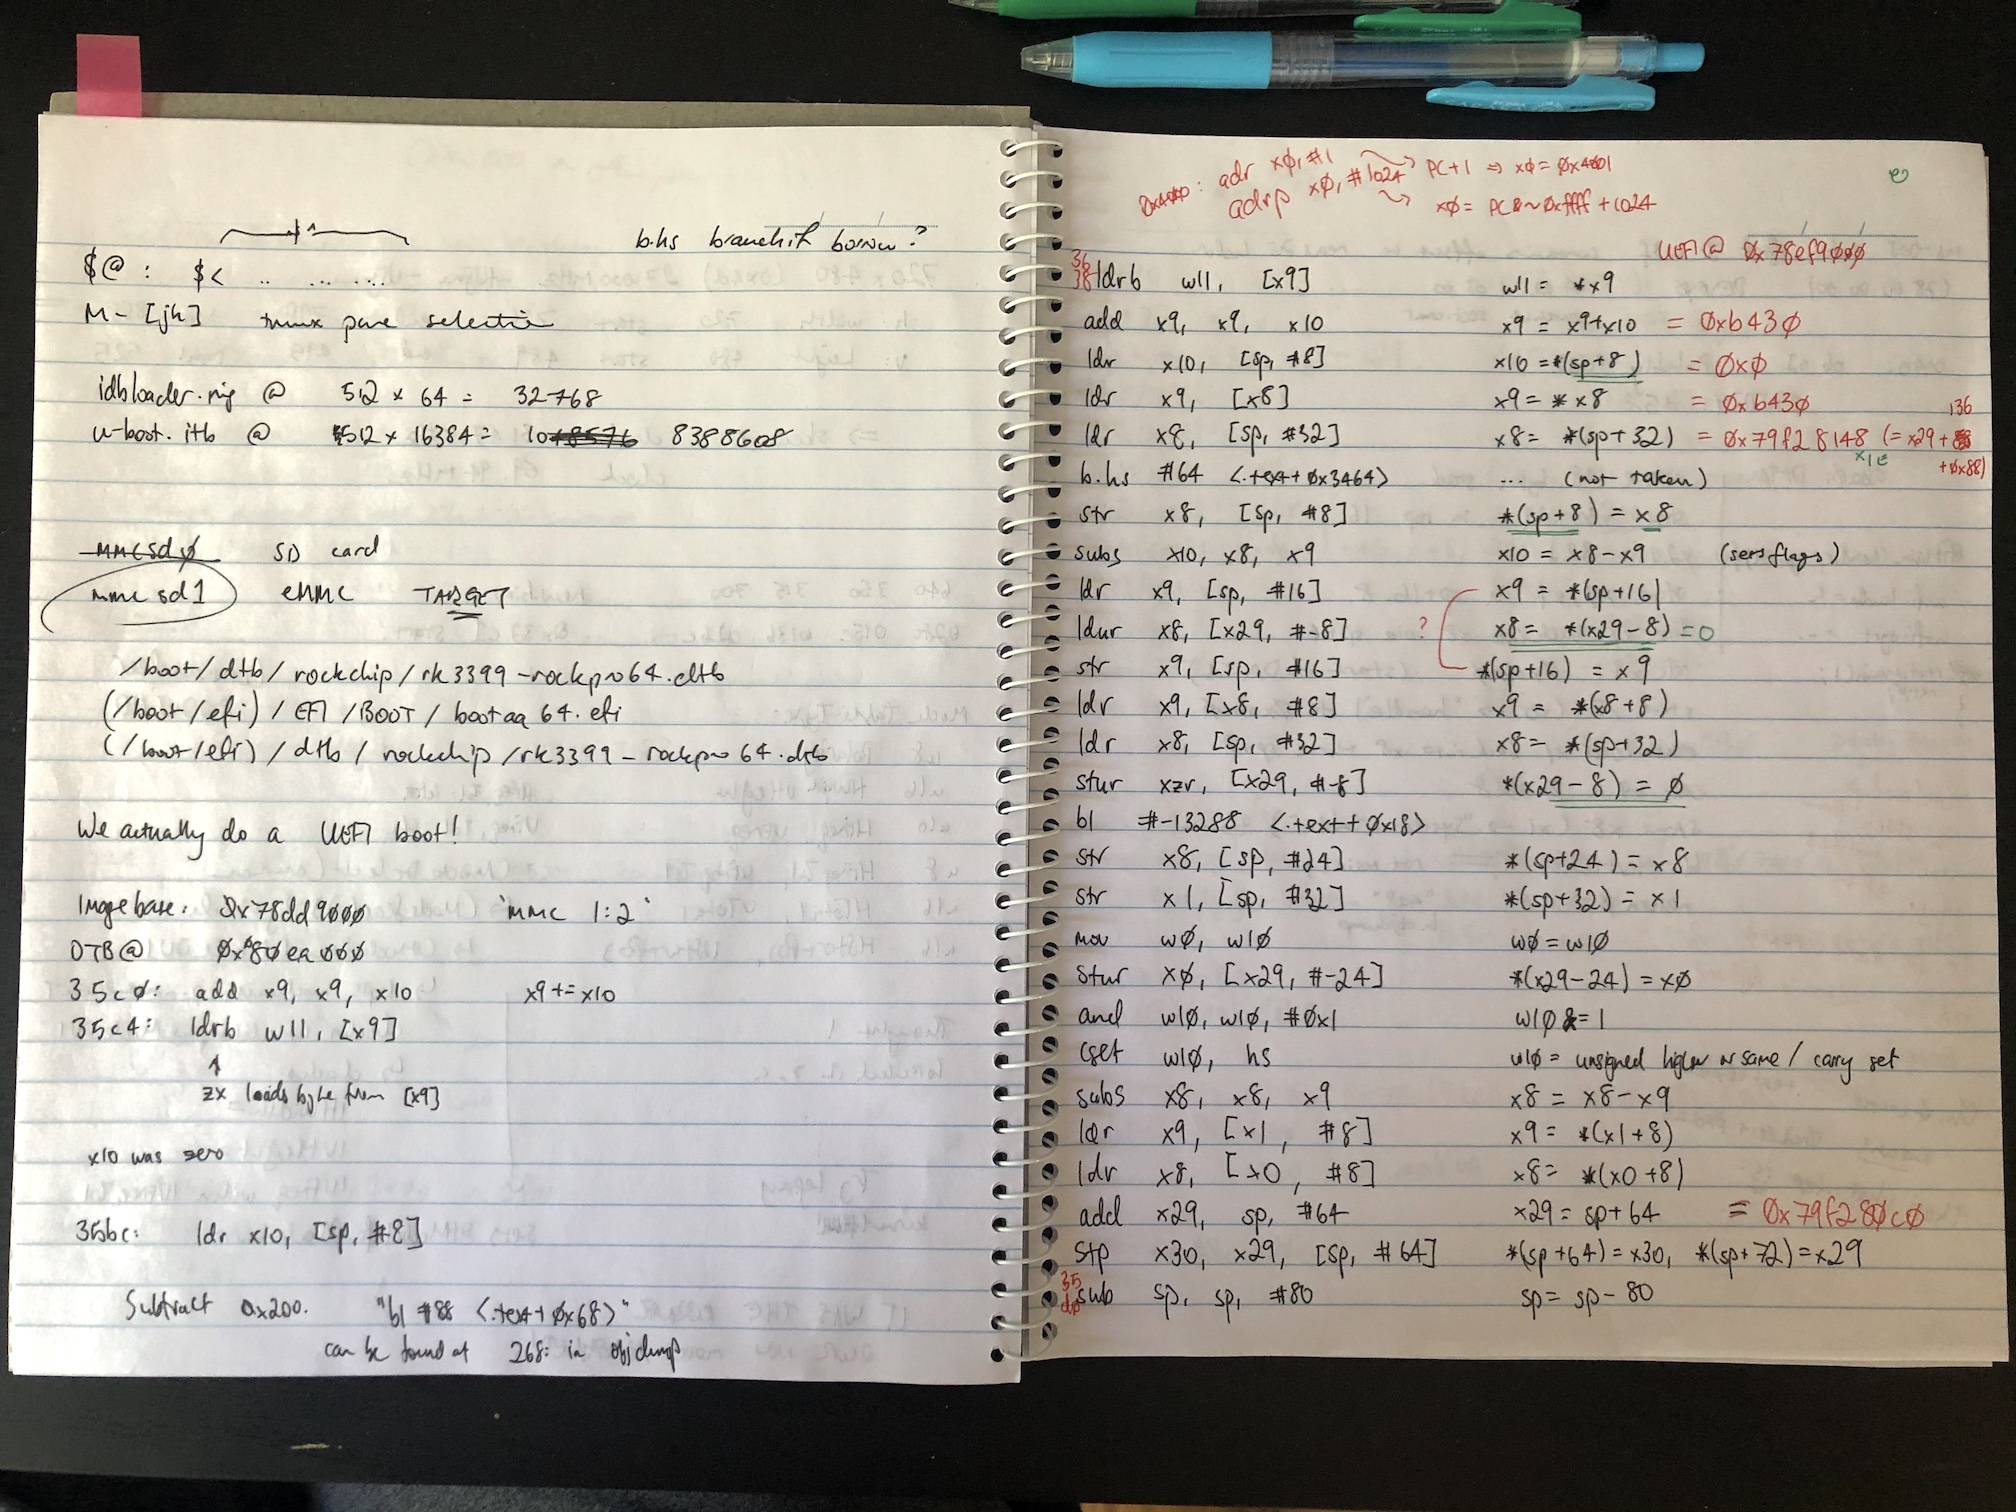 b.hs branch if borrow?
$@ : $< .. ... ...
M-[jk] tmux pane selection
idbloader.img @ 512 × 64 = 32768
u-boot.itb @ 512 × 16384 = 8388608
mmcsd0 SD card
mmcsd1 eMMC TARGET
/boot/dtb/rockchip/rk3399-rockpro64.dtb
(/boot/efi)/EFI/BOOT/bootaa64.efi
(/boot/efi)/dtb/rockchip/rk3399-rockpro64.dtb
We actually do a UEFI boot!
Image base: 0x78dd9000 'mmc 1:2'
DTB@ 0x80ea000
35c0: add x9, x9, x10 x9 += x10
35c4: ldrb w11, [x9]
↑
zx loads byte from [x9]
x10 was zero
35bc: ldr x10, [sp, #8]
Subtract 0x200. "bl #88 <.text+0x68>"
can be found at 268: in objdump
0x4000: adr x0, #1 → PC+1 ⇒ x0 = 0x4001
adrp x0, #1024 → x0 = PC & ~0xffff + 1024
UEFI @ 0x78ef9000
36
38 ldrb w11, [x9] w11 = *x9
add x9, x9, x10 x9 = x9+x10 = 0xb430
ldr x10, [sp, #8] x10 = *(sp+8) = 0x0
ldr x9, [x8] x9 = *x8 = 0xb430
136
ldr x8, [sp, #32] x8 = *(sp+32) = 0x79f28148 (= x29 +
x1E +0x88)
b.hs #64 <.text+0x3464> ... (not taken)
str x8, [sp, #8] *(sp+8) = x8
subs x10, x8, x9 x10 = x8-x9 (sets flags)
ldr x9, [sp, #16] x9 = *(sp+16)
ldur x8, [x29, #-8] ? x8 = *(x29-8) = 0
str x9, [sp, #16] *(sp+16) = x9
ldr x9, [x8, #8] x9 = *(x8+8)
ldr x8, [sp, #32] x8 = *(sp+32)
stur xzr, [x29, #-8] *(x29-8) = 0
bl #-13288 <.text+0x18>
str x8, [sp, #24] *(sp+24) = x8
str x1, [sp, #32] *(sp+32) = x1
mov w0, w10 w0 = w10
stur x0, [x29, #-24] *(x29-24) = x0
and w10, w10, #0x1 w10 &= 1
cset w10, hs w10 = unsigned higher or same / carry set
subs x8, x8, x9 x8 = x8-x9
ldr x9, [x1, #8] x9 = *(x1+8)
ldr x8, [x0, #8] x8 = *(x0+8)
add x29, sp, #64 x29 = sp+64 = 0x79f280c0
stp x30, x29, [sp, #64] *(sp+64) = x30, *(sp+72) = x29
35
d0 sub sp, sp, #80 sp = sp-80